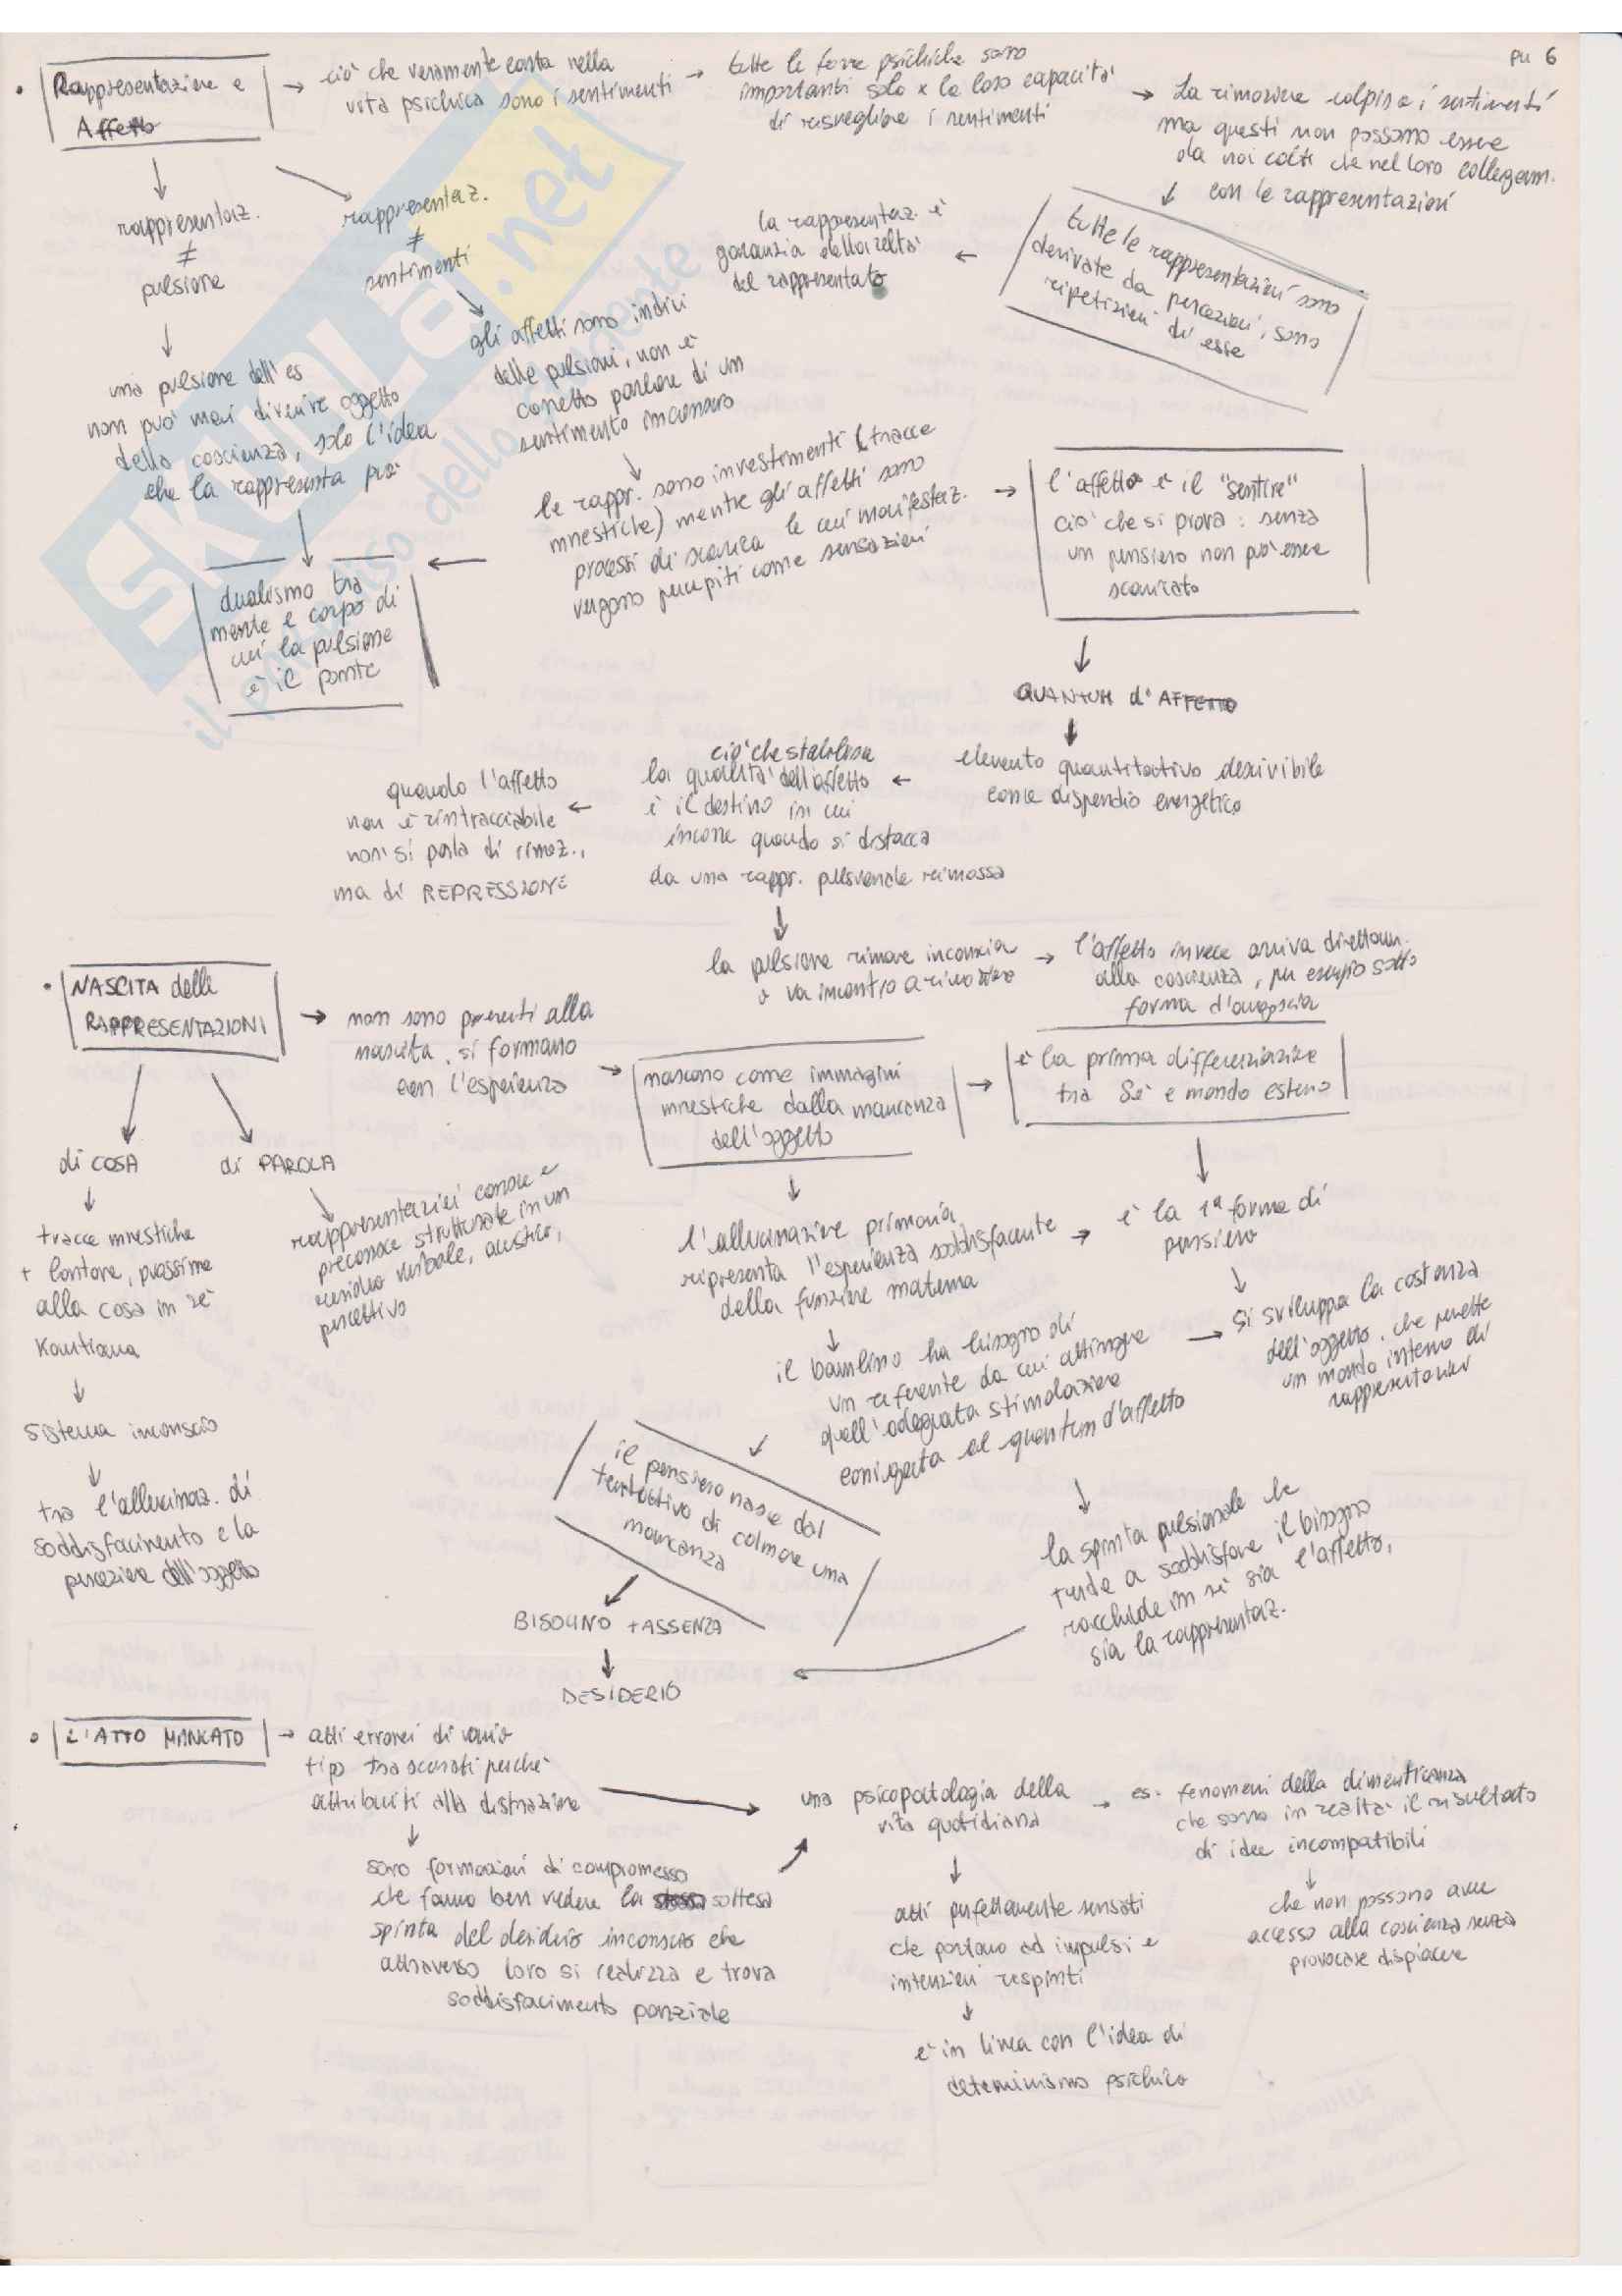 PU 6
Rappresentazione e
Affetto
ciò che veramente conta nella
vita psichica sono i sentimenti
tutte le forze psichiche sono
importanti solo x la loro capacità
di risvegliare i sentimenti
La rimozione colpisce i sentimenti
ma questi non possono essere
da noi colti che nel loro collegam.
con le rappresentazioni
tutte le rappresentazioni sono
derivate da percezioni, sono
ripetizioni di esse
la rappresentaz. è
garanzia della realtà
del rappresentato
rappresentaz.
≠
pulsione
rappresentaz.
≠
sentimenti
una pulsione dell'es
non può mai divenire oggetto
della coscienza, solo l'idea
che la rappresenta può
gli affetti sono indici
delle pulsioni, non è
corretto parlare di un
sentimento inconscio
le rappr. sono investimenti (tracce
mnestiche) mentre gli affetti sono
processi di scarica le cui manifestaz.
vengono percepiti come sensazioni
l'affetto è il "sentire"
ciò che si prova: senza
un pensiero non può essere
scaricato
dualismo tra
mente e corpo di
cui la pulsione
è il ponte
QUANTUM d'AFFETTO
elemento quantitativo descrivibile
come dispendio energetico
ciò che stabilisce
la qualità dell'affetto
è il destino in cui
incorre quando si distacca
da una rappr. pulsionale rimossa
quando l'affetto
non è rintracciabile
non si parla di rimoz.,
ma di REPRESSIONE
la pulsione rimane inconscia
o va incontro a rimozione
l'affetto invece arriva direttam.
alla coscienza, per esempio sotto
forma d'angoscia
NASCITA delle
RAPPRESENTAZIONI
non sono presenti alla
nascita, si formano
con l'esperienza
nascono come immagini
mnestiche dalla mancanza
dell'oggetto
è la prima differenziazione
tra Sé e mondo esterno
di COSA
di PAROLA
tracce mnestiche
+ lontane, prossime
alla cosa in sé
Kantiana
sistema inconscio
tra l'allucinaz. di
soddisfacimento e la
percezione dell'oggetto
rappresentazioni conscie e
preconsce strutturate in un
residuo verbale, acustico,
percettivo
l'allucinazione primaria
ripresenta l'esperienza soddisfacente
della funzione materna
è la 1ª forma di
pensiero
il bambino ha bisogno di
un referente da cui attingere
quell'adeguata stimolazione
coniugata al quantum d'affetto
si sviluppa la costanza
dell'oggetto, che permette
un mondo interno di
rappresentazioni
il pensiero nasce dal
tentativo di colmare una
mancanza
la spinta pulsionale che
tende a soddisfare il bisogno
racchiude in sé sia l'affetto,
sia la rappresentaz.
BISOGNO + ASSENZA
DESIDERIO
L'ATTO MANCATO
atti erronei di vario
tipo trascurati perché
attribuiti alla distrazione
una psicopatologia della
vita quotidiana
es. fenomeni della dimenticanza
che sono in realtà il risultato
di idee incompatibili
che non possono avere
accesso alla coscienza senza
provocare dispiacere
sono formazioni di compromesso
che fanno ben vedere la sottesa
spinta del desiderio inconscio che
attraverso loro si realizza e trova
soddisfacimento parziale
atti perfettamente sensati
che portano ad impulsi e
intenzioni respinti
è in linea con l'idea di
determinismo psichico
SKUOLA.net